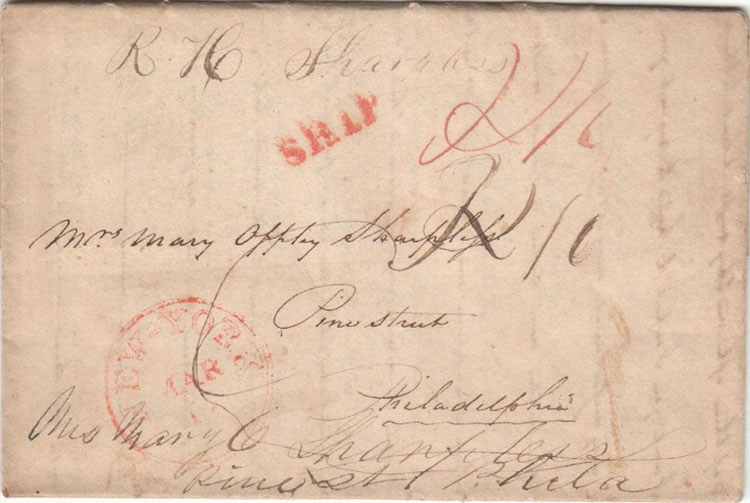 R. H Sharpless
SHIP
Mrs Mary Offley Sharpless
Pine street
NEW-YORK
MAR
Philadelphia
Mrs Mary O Sharpless
Pine St Phila